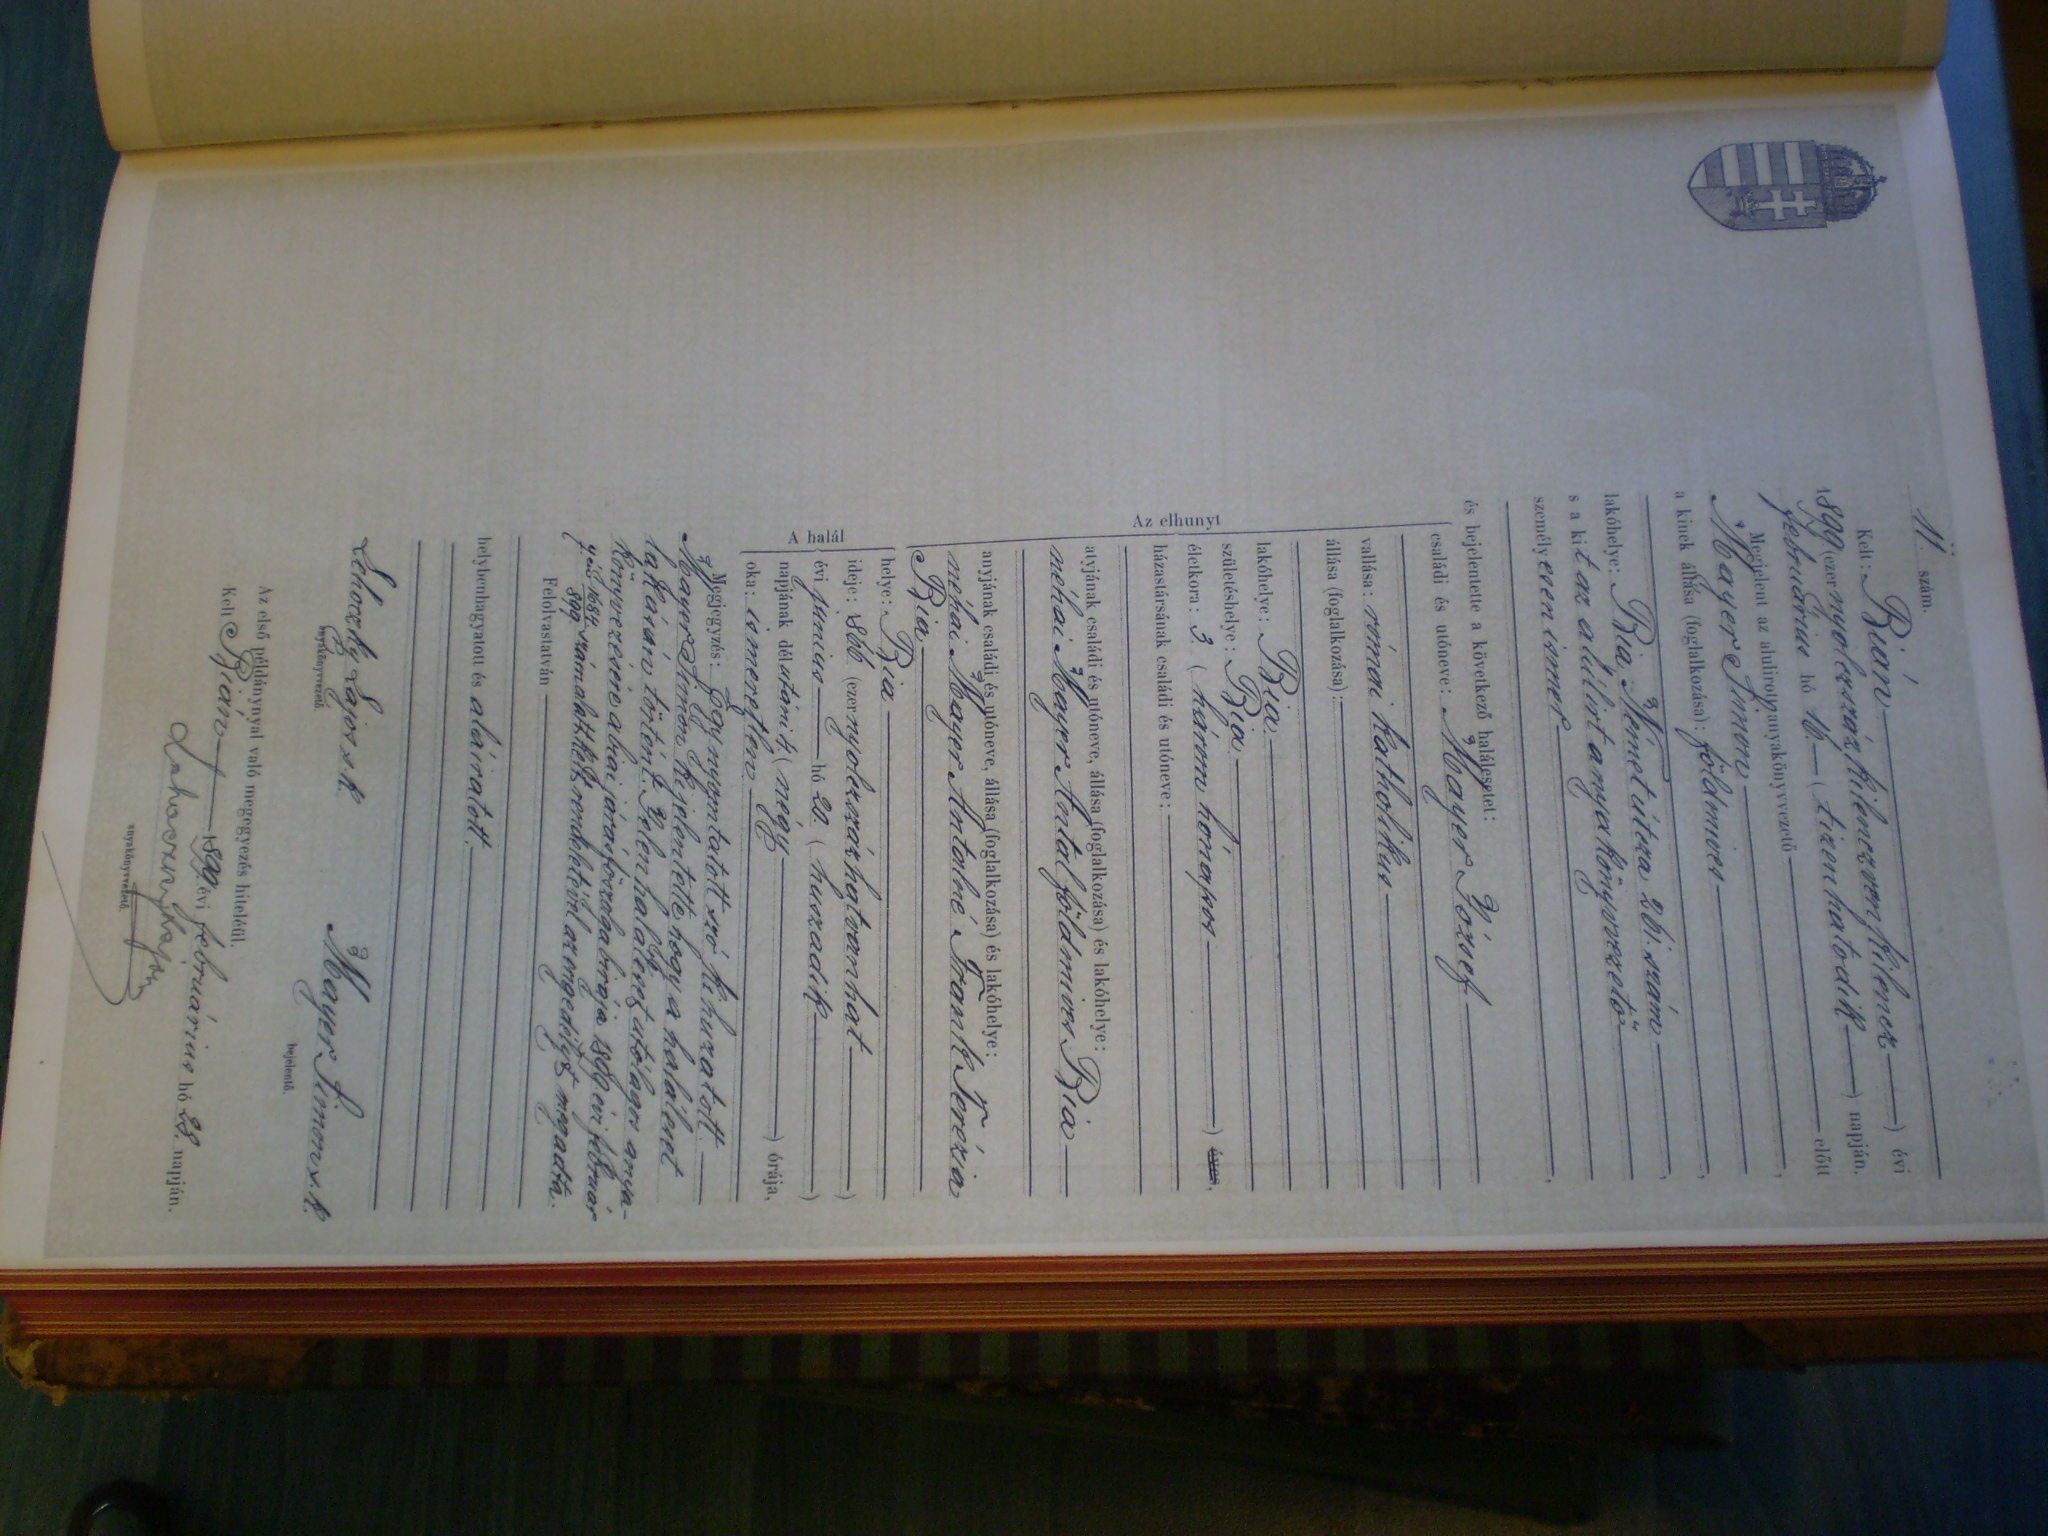 11. szám.
Kelt: Bián
1899 (ezernyolczszázkilenczvenkilencz) évi
februárius hó 16 (tizenhatodik) napján.
Megjelent az alulirott anyakönyvvezető előtt
Mayer Simon
a kinek állása (foglalkozása): földmives
lakóhelye: Bia Német útsza 261. szám
s a kit az alúlirt anyakönyvezető
személyesen ismer,
és bejelentette a következő halálesetet:
Az elhunyt
családi és utóneve: Mayer József
vallása: római katholikus
állása (foglalkozása):
lakóhelye: Bia
születéshelye: Bia
életkora: 3 (három hónapos) éves,
házastársának családi és utóneve:
atyjának családi és utóneve, állása (foglalkozása) és lakóhelye:
néhai Mayer Antal földmives Bia
anyjának családi és utóneve, állása (foglalkozása) és lakóhelye:
néhai Mayer Antalné Frank Terézia
Bia
A halál
helye: Bia
ideje: 1866 (ezernyolczszázhatvanhat)
évi junius hó 20 (huszadik)
napjának délutáni 4 (négy) órája,
oka: ismeretlen
Megjegyzés: Egy nyomtatott szó kihuzatott.
Mayer Simon kijelentette hogy a haláleset
Bián történt. Jelen haláleset utólagos anya-
könyvezésére a biai járás főszolgabirája 1899 évi február
899 szám alatt kelt rendeletével az engedélyt megadta.
Felolvastatván
helybenhagyatott és aláiratott.
Lehoczky Lajos s.k.
anyakönyvvezető.
Mayer Simon s.k.
bejelentő.
Az első példánynyal való megegyezés hiteléűl.
Kelt Bián 1899 évi februárius hó 28. napján.
Lehoczky Lajos
anyakönyvvezető.